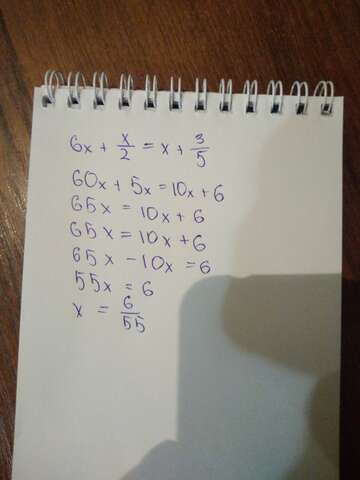 6x + x/2 = x + 3/5
60x + 5x = 10x + 6
65x = 10x + 6
65x = 10x + 6
65x - 10x = 6
55x = 6
x = 6/55